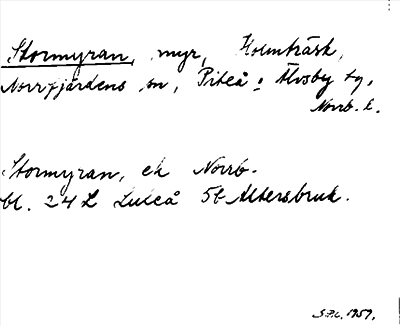 Stormyran, myr, Holmträsk,
Norrfjärdens sn, Piteå o Älvsby tg,
Norrb. l.
Stormyran, ek Norrb.
bl. 24 L Luleå 5b Altersbruk.
1959.